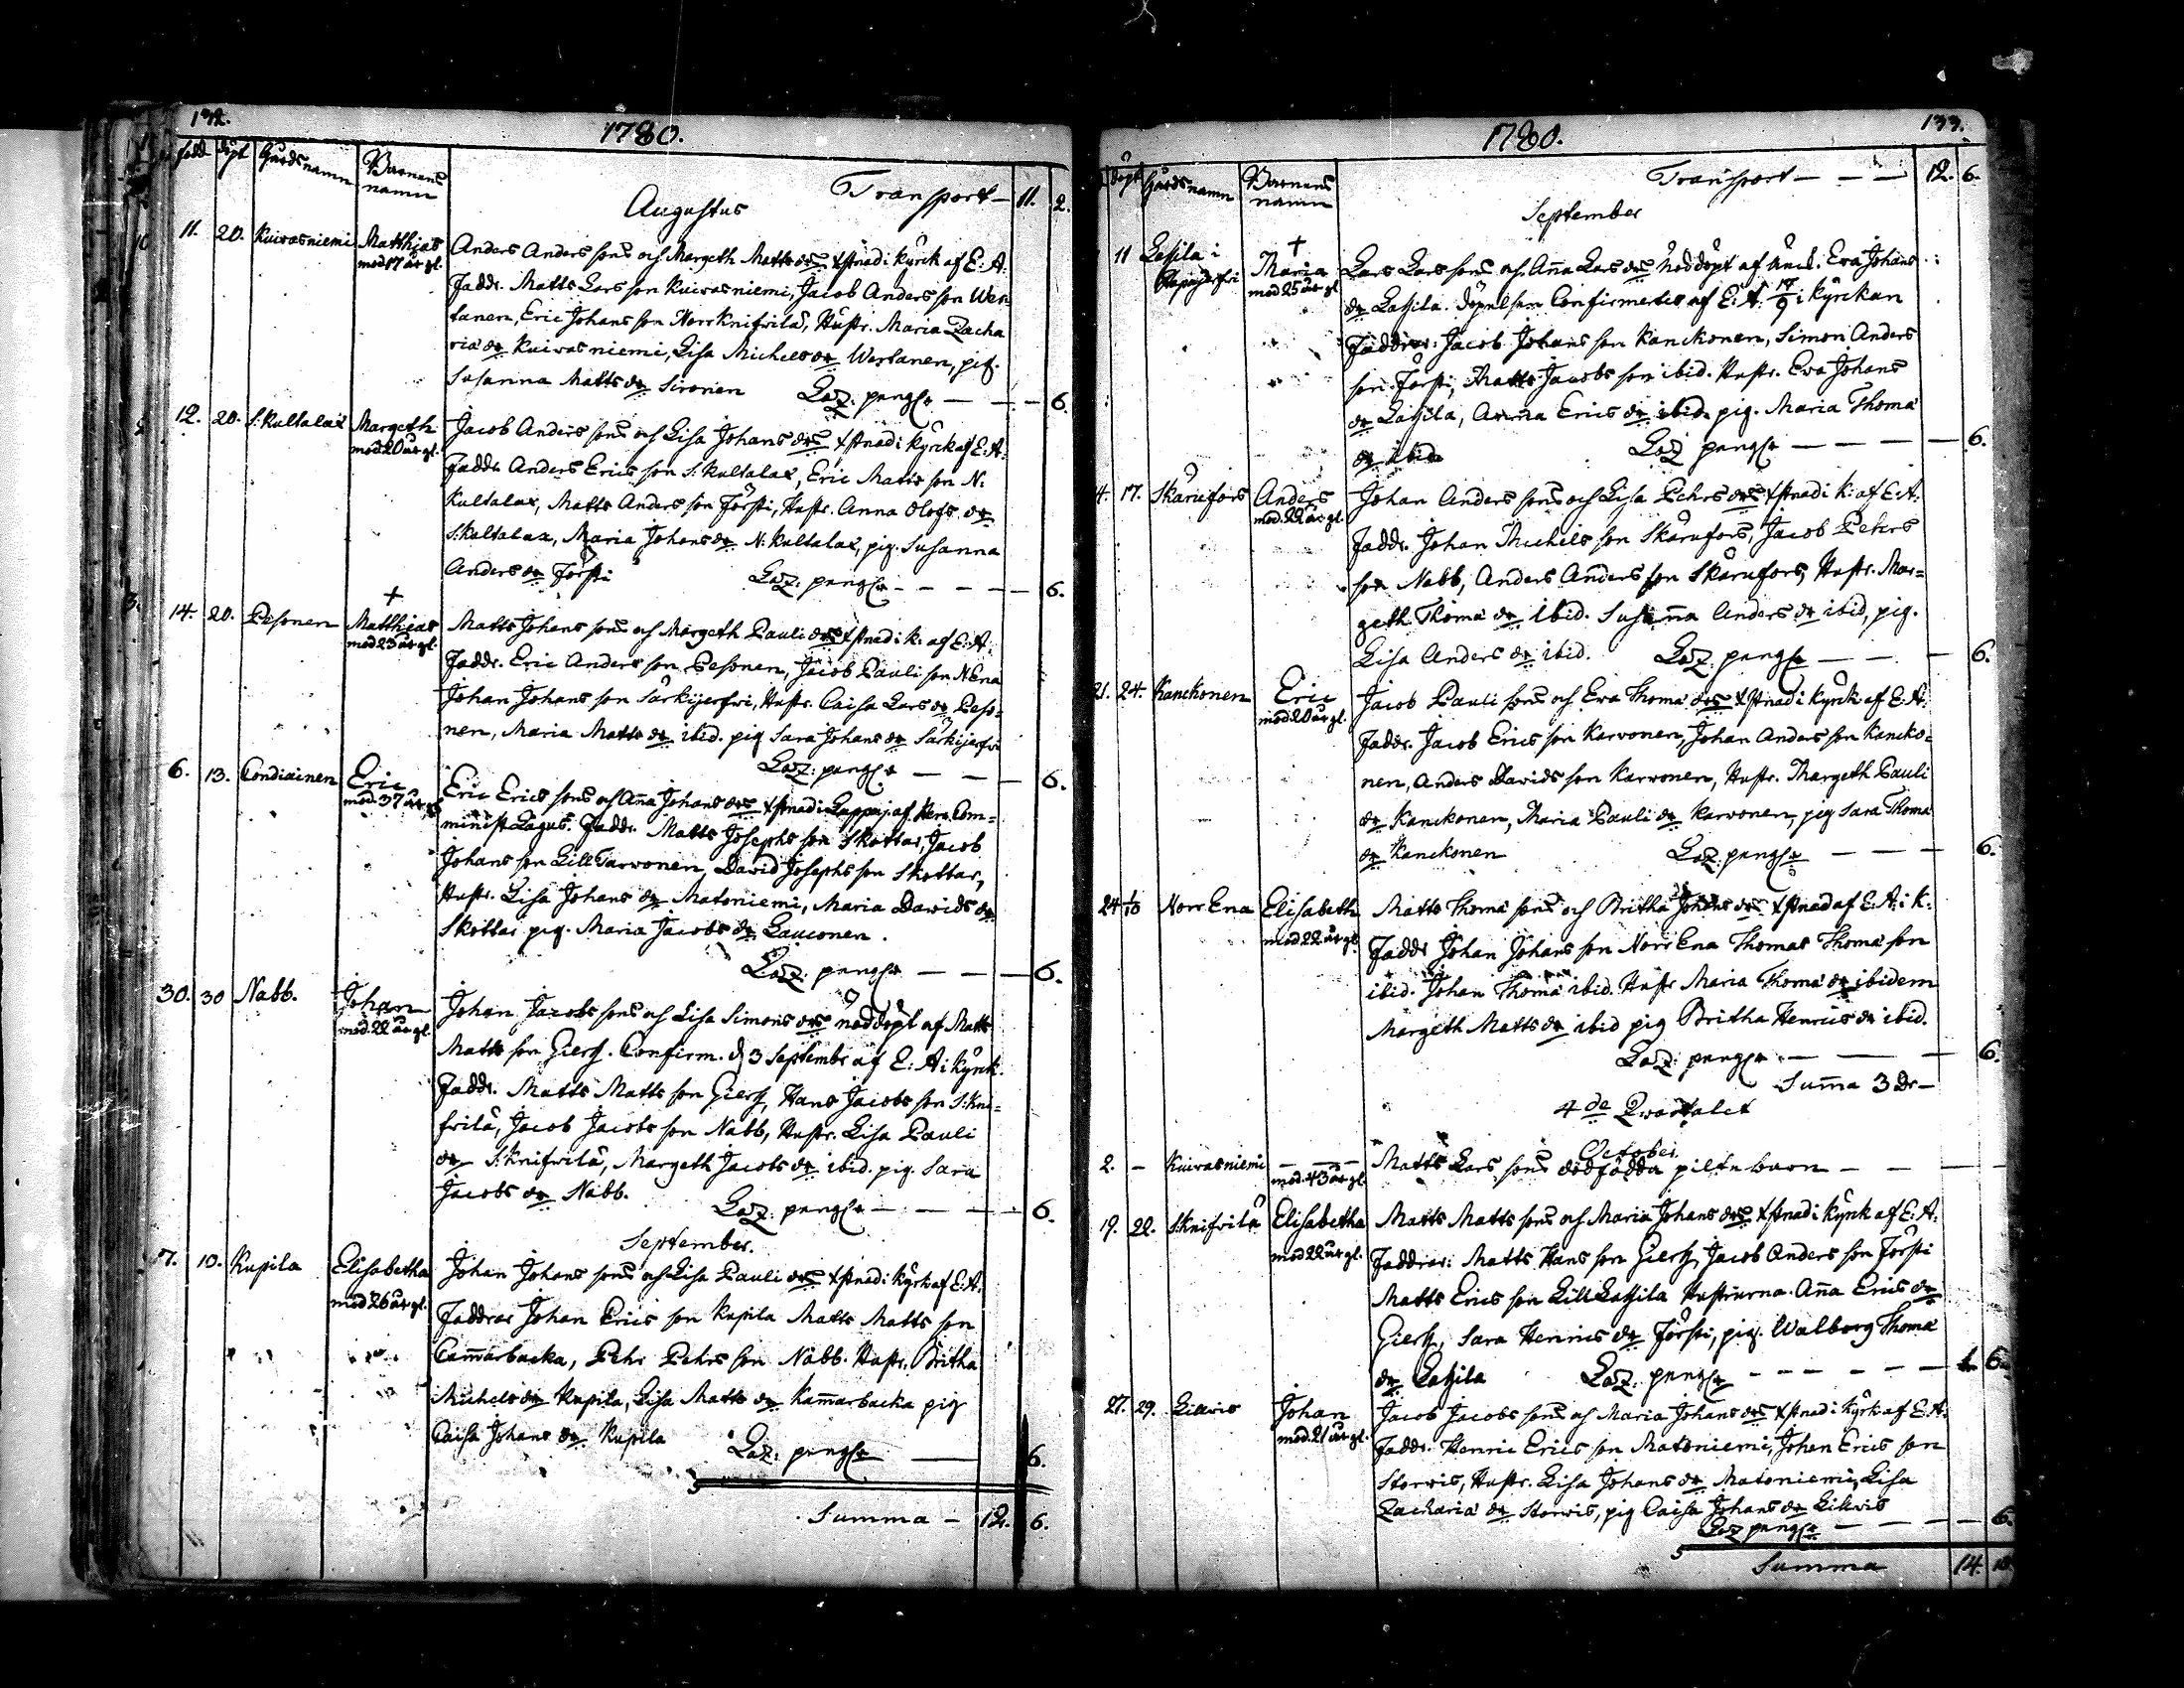 132.
1780.
född döpt Gårds namn Barnens namn
Transport — 11. 2.
Augustus
11. 20. Kuivasniemi Matthias Anders Anders sons och Margeth Matts drs xstnad i Kyrck af E: A:
mod 17 år gl. Faddr. Matts Lars son Kuivasniemi, Jacob Anders son Wer
tanen, Eric Johans son Norrknifvilä, Hustr. Maria Zacha
riæ dr Kuivasniemi, Lisa Michels dr Wertanen, pig.
Susanna Matts dr Sironen Laz: peng:r — — — 6.
12. 20. S: Kultalax Margeth Jacob Anders sons och Lisa Johans drs xstnad i Kyrck af E: A:
mod 20 år gl. Faddr. Anders Erics son S. Kultalax, Eric Matts son N.
Kultalax, Matts Anders son Försti, Hustr. Anna Olofs dr
S. Kultalax, Maria Johans dr N. Kultalax, pig. Susanna
Anders dr Försti Laz: peng:r — — — — 6.
+
14. 20. Pesonen Matthias Matts Johans sons och Margeth Pauli drs xstnad i k. af E: A:
mod 23 år gl. Faddr. Eric Anders son Pesonen, Jacob Pauli son N Ena
Johan Johans son Särkijerfvi, Hustr. Caisa Lars dr Peso-
nen, Maria Matts dr ibid. pig Sara Johans dr Särkijerfvi
Laz: peng:r — — — 6.
6. 13. Condiainen Eric Eric Erics sons och Aña Johans drs xstnad i Lappaj. af Herr Com-
mod. 37 år gl. minist Lagus. Faddr. Matts Josephs son Skottar, Jacob
Johans son Lill Tarvonen, David Josephs son Skottar,
Hustr. Lisa Johans dr Matoniemi, Maria Davids dr
Skottar pig. Maria Jacobs dr Lauconen.
Laz: peng:r — — — 6.
30. 30 Nabb. Johan Johan Jacobs sons och Lisa Simons drs nöddöpt af Matts
mod. 22 år gl. Matts son Giers. Confirm. d 3 Septembr af E: A: i Kyrk.
Faddr. Matts Matts son Giers, Hans Jacobs son S: Kni-
fvilä, Jacob Jacobs son Nabb, Hustr. Lisa Pauli
dr S: Knifvilä, Margeth Jacobs dr ibid. pig. Sara
Jacobs dr Nabb. Laz: peng:r — — — 6.
September.
7. 10. Kupila Elisabetha Johan Johans sons och Lisa Pauli drs xstnad i Kyrk af E: A:
mod 26 år gl. Faddrar Johan Erics son Kupila Matts Matts son
Cam̃arbacka, Pehr Pehrs son Nabb. Hustr. Britha
Michels dr Kupila, Lisa Matts dr Kam̃arbacka pig
Caisa Johans dr Kupila Laz: peng:r — 6.
Summa — 12. 6.
133.
1780.
döpt Gårds namn Barnens namn
Transport — — — 12. 6.
September
+
11 Lassila i Maria Lars Lars sons och Aña Lars drs Nöddöpt af Änck. Eva Johans
mod 25 år gl dr Lassila. döpelsen Confirmerdes af E: A: 17/9 i Kyrckan
Faddrar: Jacob Johans son Kanckonen, Simon Anders
son Försti, Matts Jacobs son ibid. Hustr. Eva Johans
dr Lassila, Anna Erics dr ibid. pig. Maria Thomæ
dr ibid Laz: peng:r — — — — 6.
4. 17. Skärufors Anders Johan Anders sons och Lisa Pehrs drs xstnad i k: af E: A:
mod. 22 år gl. Faddr. Johan Michels son Skärufors, Jacob Peters
son Nabb, Anders Anders son Skärufors, Hustr. Mar-
geth Thomæ dr ibid. Susan̄a Anders dr ibid, pig.
Lisa Anders dr ibid. Laz: peng:r — — — 6.
21. 24. Kanckonen Eric Jacob Pauli sons och Eva Thomæ drs xstnad i Kyrk af E: A:
mod 20 år gl. Faddr. Jacob Erics son Karvonen, Johan Anders son Kancko-
nen, Anders Davids son Karvonen, Hustr. Margeth Pauli
dr Kanckonen, Maria Pauli dr Karvonen, pig Sara Thomæ
dr Kanckonen Laz: peng:r — — — 6.
24 1/10 Norr Ena Elisabeth Matts Thomæ sons och Britha Johans drs xstnad af E: A: i k:
mod 22 år gl Faddr Johan Johans son Norr Ena Thomas Thomæ son
ibid. Johan Thomæ ibid. Hustr Maria Thomæ dr ibidem
Margeth Matts dr ibid pig Britha Henrics dr ibid.
Laz: peng:r — — — 6.
Sum̃a 3 Dr —
4 de Qvartalet
October
2. — Kuivasniemi — — — Matts Lars sons dödfödda piltebarn — — — —
mod. 43 år gl.
19. 22. S: Knifvilä Elisabetha Matts Matts sons och Maria Johans drs xstnad i Kyrk af E: A:
mod 22 år gl. Faddrar: Matts Hans son Giers, Jacob Anders son Försti
Matts Erics son Lill Lassila Hustrurna. Aña Erics dr
Giers, Sara Henrics dr Försti, pig. Walborg Thomæ
dr Lassila Laz: peng:r — — — — — 6.
27. 29. Lillvis Johan Jacob Jacobs sons och Maria Johans drs xstnad i Kyrk af E: A:
mod. 21 år gl. Faddr. Henric Erics son Matoniemi, Johan Erics son
Storvis, Hustr. Lisa Johans dr Matoniemi, Lisa
Zachariæ dr Storvis, pig Caisa Johans dr Lillvis
Laz peng:r — — — — 6.
Summa 14.